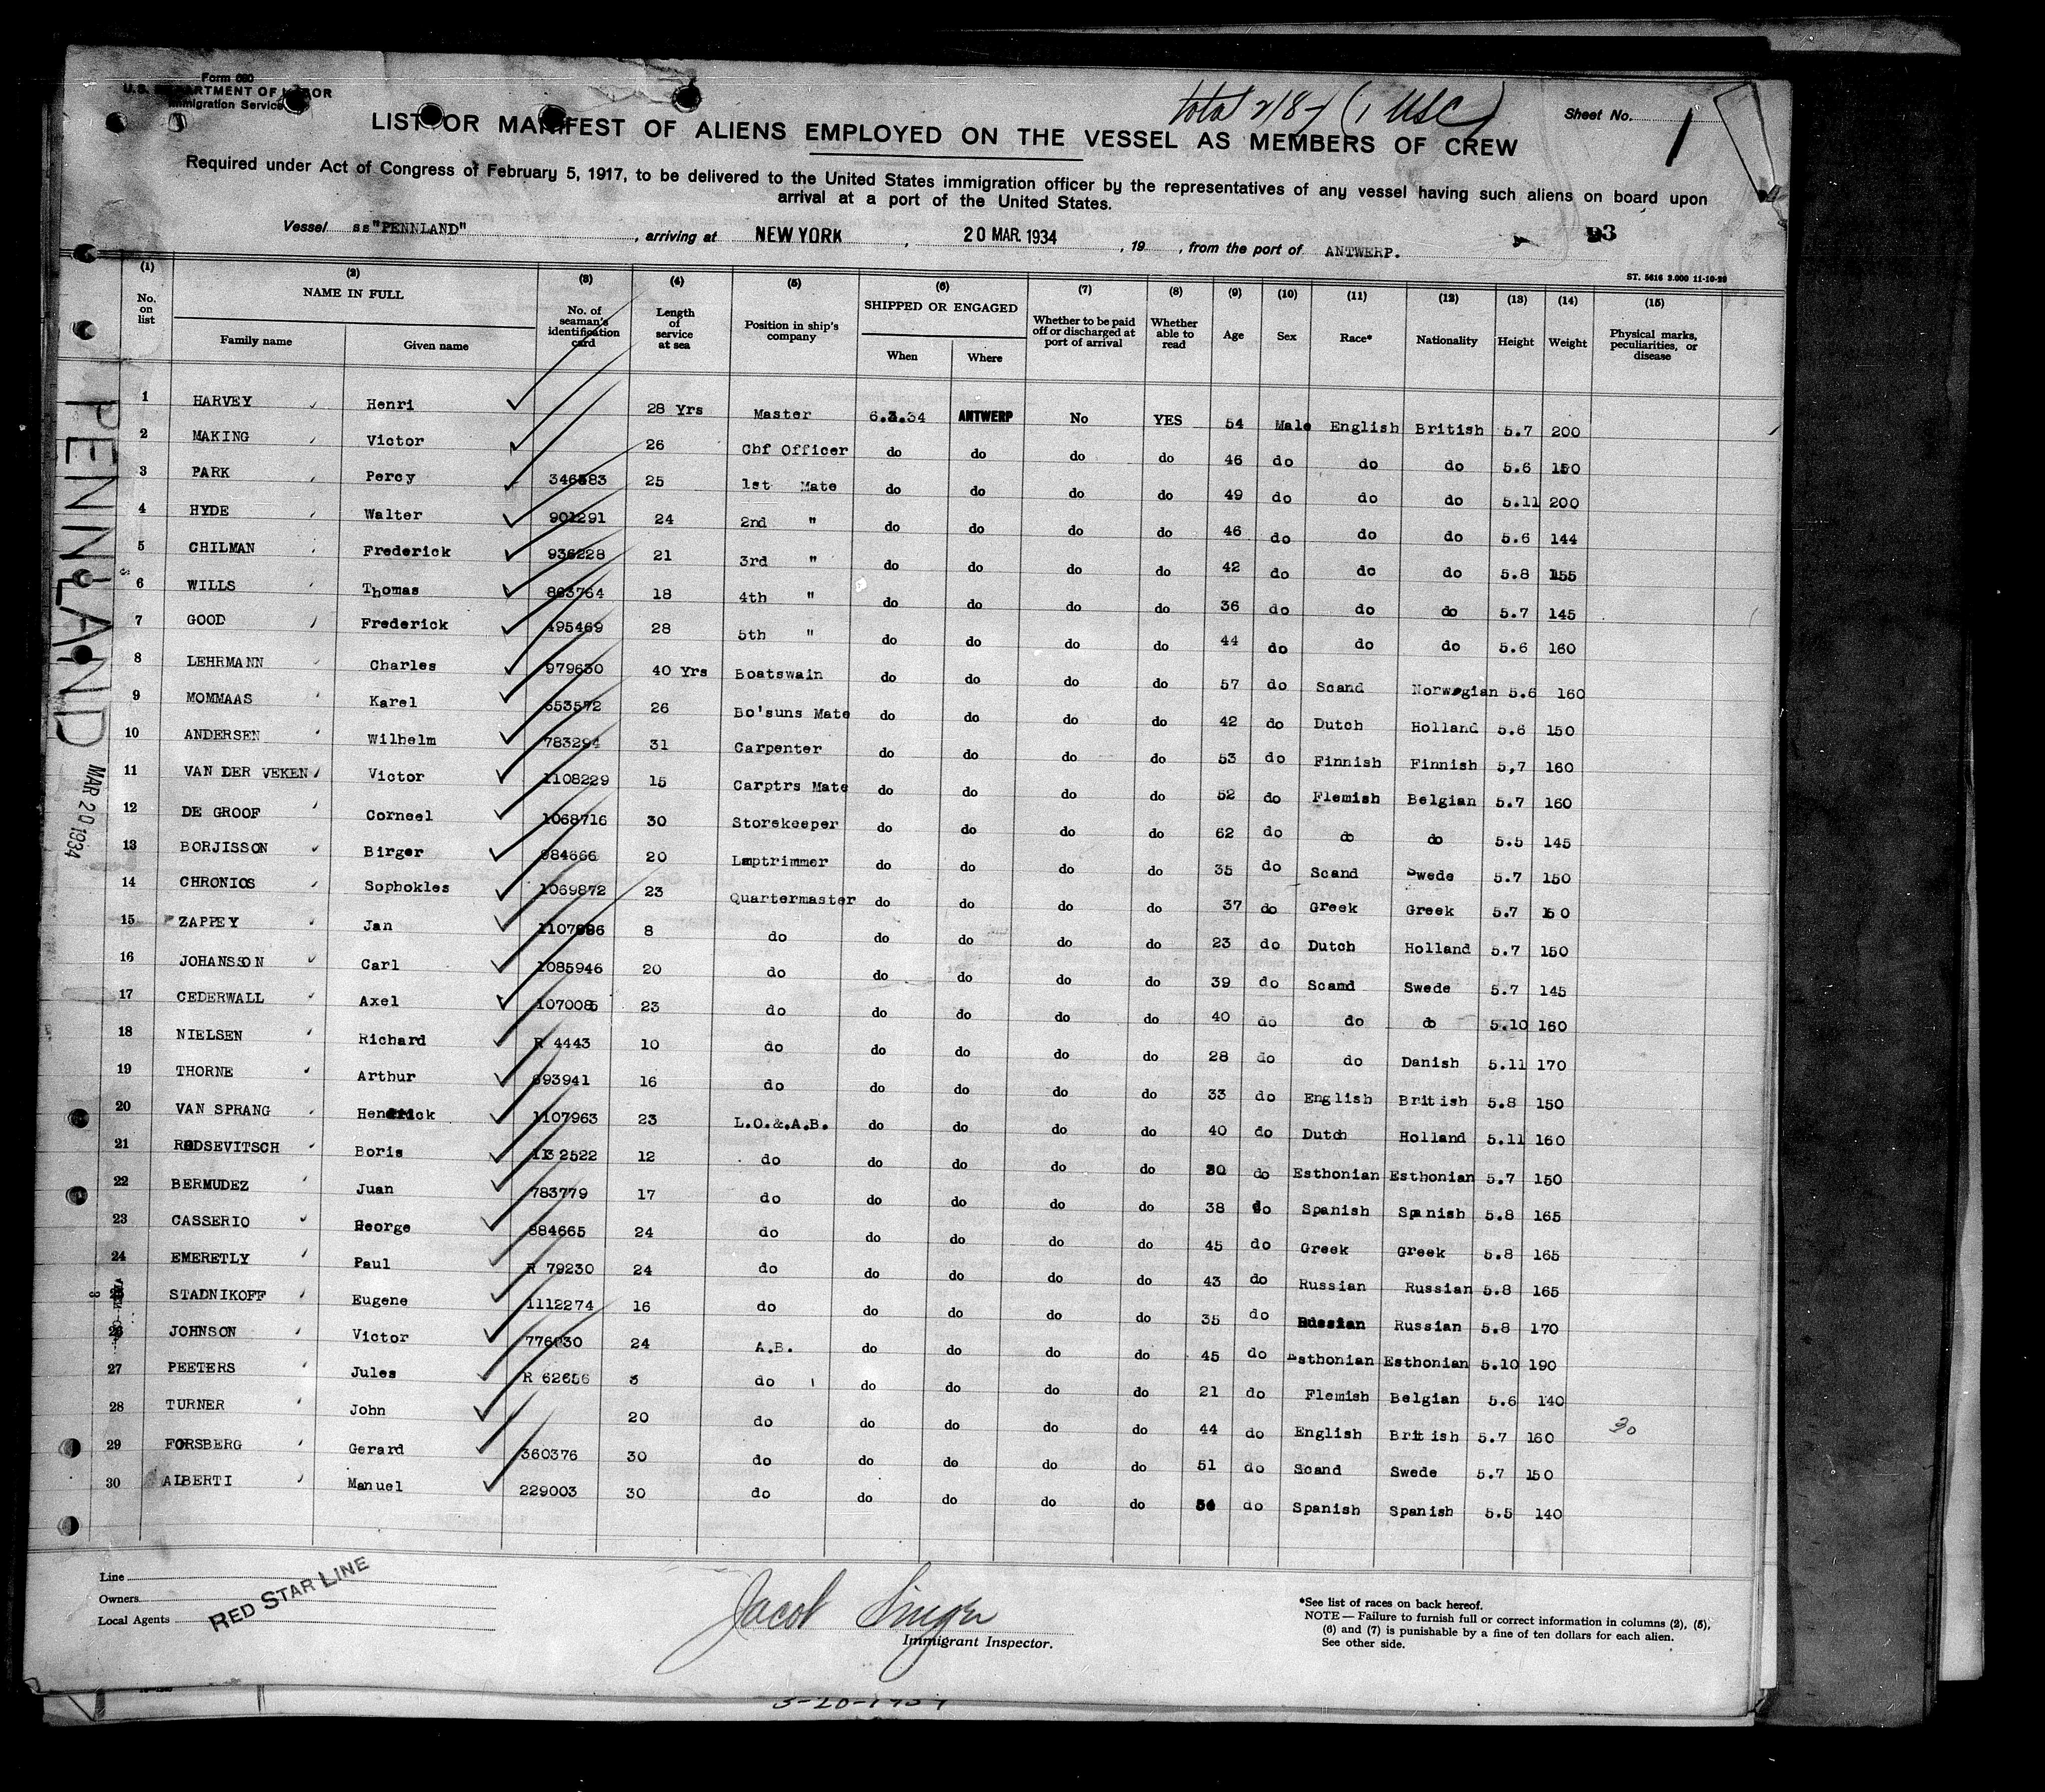 Form 680
U.S. DEPARTMENT OF LABOR
Immigration Service
total (1 USC)
Sheet No. 1
LIST OR MANIFEST OF ALIENS EMPLOYED ON THE VESSEL AS MEMBERS OF CREW
Required under Act of Congress of February 5, 1917, to be delivered to the United States immigration officer by the representatives of any vessel having such aliens on board upon
arrival at a port of the United States.
Vessel ss"PENNLAND", arriving at NEW YORK, 20 MAR. 1934, 19, from the port of ANTWERP. 3
ST. 5616 3.000 11-10-29
(1) (2) (3) (4) (5) (6) (7) (8) (9) (10) (11) (12) (13) (14) (15)
No. on list NAME IN FULL Family name Given name No. of seaman's identification card Length of service at sea Position in ship's company SHIPPED OR ENGAGED When Where Whether to be paid off or discharged at port of arrival Whether able to read Age Sex Race* Nationality Height Weight Physical marks, peculiarities, or disease
1 HARVEY Henri 28 Yrs Master 6.3.34 ANTWERP No YES 54 Male English British 5.7 200
2 MAKING Victor 26 Chf Officer do do do do 46 do do do 5.6 150
3 PARK Percy 346583 25 1st Mate do do do do 49 do do do 5.11 200
4 HYDE Walter 901291 24 2nd " do do do do 46 do do do 5.6 144
5 CHILMAN Frederick 936228 21 3rd " do do do do 42 do do do 5.8 155
6 WILLS Thomas 863764 18 4th " do do do do 36 do do do 5.7 145
7 GOOD Frederick 495469 28 5th " do do do do 44 do do do 5.6 160
8 LEHRMANN Charles 979630 40 Yrs Boatswain do do do do 57 do Scand Norwegian 5.6 160
9 MOMMAAS Karel 553572 26 Bo'suns Mate do do do do 42 do Dutch Holland 5.6 150
10 ANDERSEN Wilhelm 783294 31 Carpenter do do do do 53 do Finnish Finnish 5,7 160
11 VAN DER VEKEN Victor 1108229 15 Carptrs Mate do do do do 52 do Flemish Belgian 5.7 160
12 DE GROOF Corneel 1068716 30 Storekeeper do do do do 62 do do do 5.5 145
13 BORJISSON Birger 984666 20 Lamptrimmer do do do do 35 do Scand Swede 5.7 150
14 CHRONIOS Sophokles 1069872 23 Quartermaster do do do do 37 do Greek Greek 5.7 150
15 ZAPPEY Jan 8 do do do do do 23 do Dutch Holland 5.7 150
16 JOHANSSON Carl 1085946 20 do do do do do 39 do Scand Swede 5.7 145
17 CEDERWALL Axel 1070085 23 do do do do do 40 do do do 5.10 160
18 NIELSEN Richard R 4443 10 do do do do do 28 do do Danish 5.11 170
19 THORNE Arthur 893941 16 do do do do do 33 do English British 5.8 150
20 VAN SPRANG Hendrick 1107963 23 L.O.&.A.B. do do do do 40 do Dutch Holland 5.11 160
21 RODSEVITSCH Boris 1132522 12 do do do do do 30 do Esthonian Esthonian 5.7 150
22 BERMUDEZ Juan 783779 17 do do do do do 38 do Spanish Spanish 5.8 165
23 CASSERIO George 884665 24 do do do do do 45 do Greek Greek 5.8 165
24 EMERETLY Paul R 79230 24 do do do do do 43 do Russian Russian 5.8 165
25 STADNIKOFF Eugene 1112274 16 do do do do do 35 do Russian Russian 5.8 170
26 JOHNSON Victor 776030 24 A.B. do do do do 45 do Esthonian Esthonian 5.10 190
27 PEETERS Jules R 62656 3 do do do do do 21 do Flemish Belgian 5.6 140
28 TURNER John 20 do do do do do 44 do English British 5.7 160 30
29 FORSBERG Gerard 360376 30 do do do do do 51 do Scand Swede 5.7 150
30 ALBERTI Manuel 229003 30 do do do do do do Spanish Spanish 5.5 140
PENNLAND
MAR 20 1934
Line
Owners
Local Agents
RED STAR LINE
Jacob Singer
Immigrant Inspector.
*See list of races on back hereof.
NOTE — Failure to furnish full or correct information in columns (2), (5),
(6) and (7) is punishable by a fine of ten dollars for each alien.
See other side.
3-20-1934